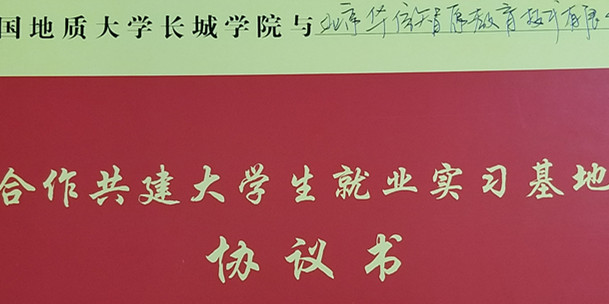 国地质大学长城学院与北京华信智原教育技术有限
合作共建大学生就业实习基地
协议书